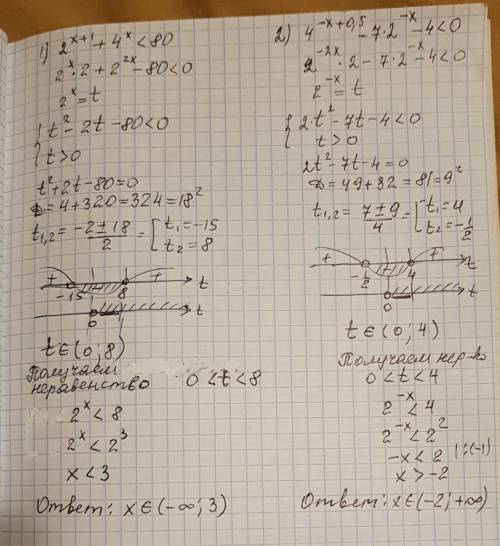 1) 2^{x+1} + 4^x < 80
2^x · 2 + 2^{2x} - 80 < 0
2^x = t
{ t² - 2t - 80 < 0
{ t > 0
t² + 2t - 80 = 0
D = 4 + 320 = 324 = 18²
t₁,₂ = (-2 ± 18)/2 = [ t₁ = -15
[ t₂ = 8
+ - + t
-15 8
0 t
t ∈ (0; 8)
Получаем
неравенство 0 < t < 8
2^x < 8
2^x < 2³
x < 3
Ответ: x ∈ (-∞; 3)
2) 4^{-x+0,5} - 7·2^{-x} - 4 < 0
2^{-2x} · 2 - 7·2^{-x} - 4 < 0
2^{-x} = t
{ 2·t² - 7t - 4 < 0
{ t > 0
2t² - 7t - 4 = 0
D = 49 + 32 = 81 = 9²
t₁,₂ = (7 ± 9)/4 = [ t₁ = 4
[ t₂ = -1/2
+ - + t
-1/2 4
0 t
t ∈ (0; 4)
Получаем нер-во
0 < t < 4
2^{-x} < 4
2^{-x} < 2²
-x < 2 |:(-1)
x > -2
Ответ: x ∈ (-2; +∞)